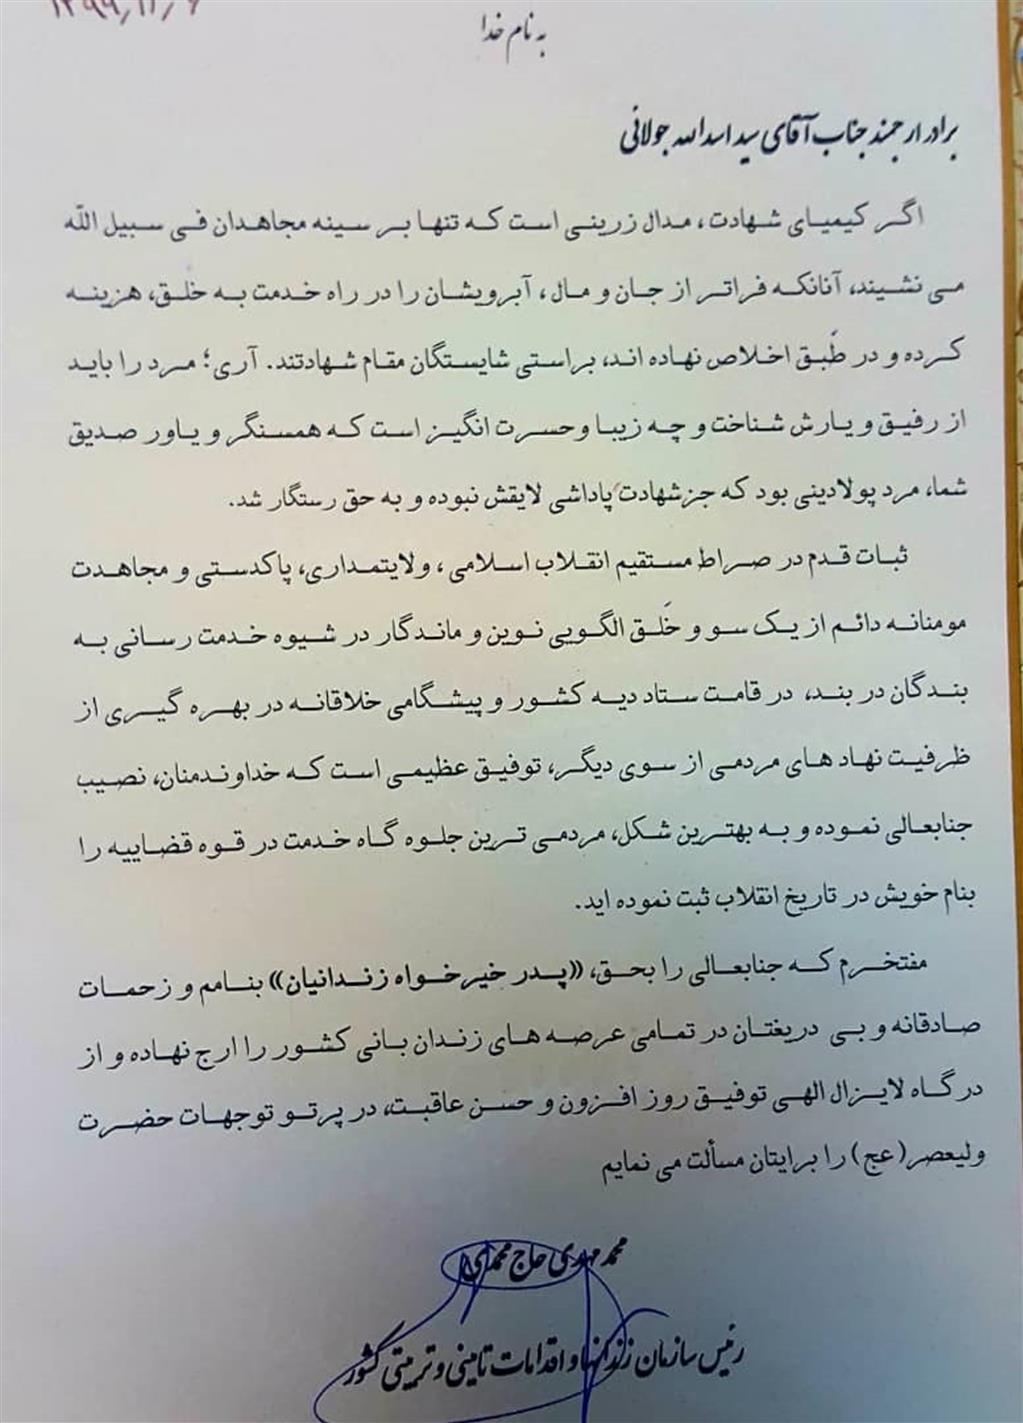 به نام خدا
برادر ارجمند جناب آقای سید اسدالله جولائی
اگر کیمیای شهادت، مدال زرینی است که تنها بر سینه مجاهدان فی سبیل اللّه
می نشیند، آنانکه فراتر از جان و مال، آبرویشان را در راه خدمت به خلق، هزینه
کرده و در طَبق اخلاص نهاده اند، براستی شایستگان مقام شهادتند. آری؛ مرد را باید
از رفیق و یارش شناخت و چه زیبا و حسرت انگیز است که همسنگر و یاور صدیق
شما، مرد پولادینی بود که جز شهادت پاداشی لایقش نبوده و به حق رستگار شد.
ثبات قدم در صراط مستقیم انقلاب اسلامی، ولایتمداری، پاکدستی و مجاهدت
مومنانه دائم از یک سو و خَلق الگویی نوین و ماندگار در شیوه خدمت رسانی به
بندگان در بند، در قامت ستاد دیه کشور و پیشگامی خلاقانه در بهره گیری از
ظرفیت نهاد های مردمی از سوی دیگر، توفیق عظیمی است که خداوندمنان، نصیب
جنابعالی نموده و به بهترین شکل، مردمی ترین جلوه گاه خدمت در قوه قضاییه را
بنام خویش در تاریخ انقلاب ثبت نموده اید.
مفتخرم که جنابعالی را بحق، «پدر خیرخواه زندانیان» بنامم و زحمات
صادقانه و بی دریغتان در تمامی عرصه های زندان بانی کشور را ارج نهاده و از
درگاه لایزال الهی توفیق روز افزون و حسن عاقبت، در پرتو توجهات حضرت
ولیعصر(عج) را برایتان مسألت می نمایم
محمد مهدی حاج محمدی
رئیس سازمان زندانها و اقدامات تامینی و تربیتی کشور